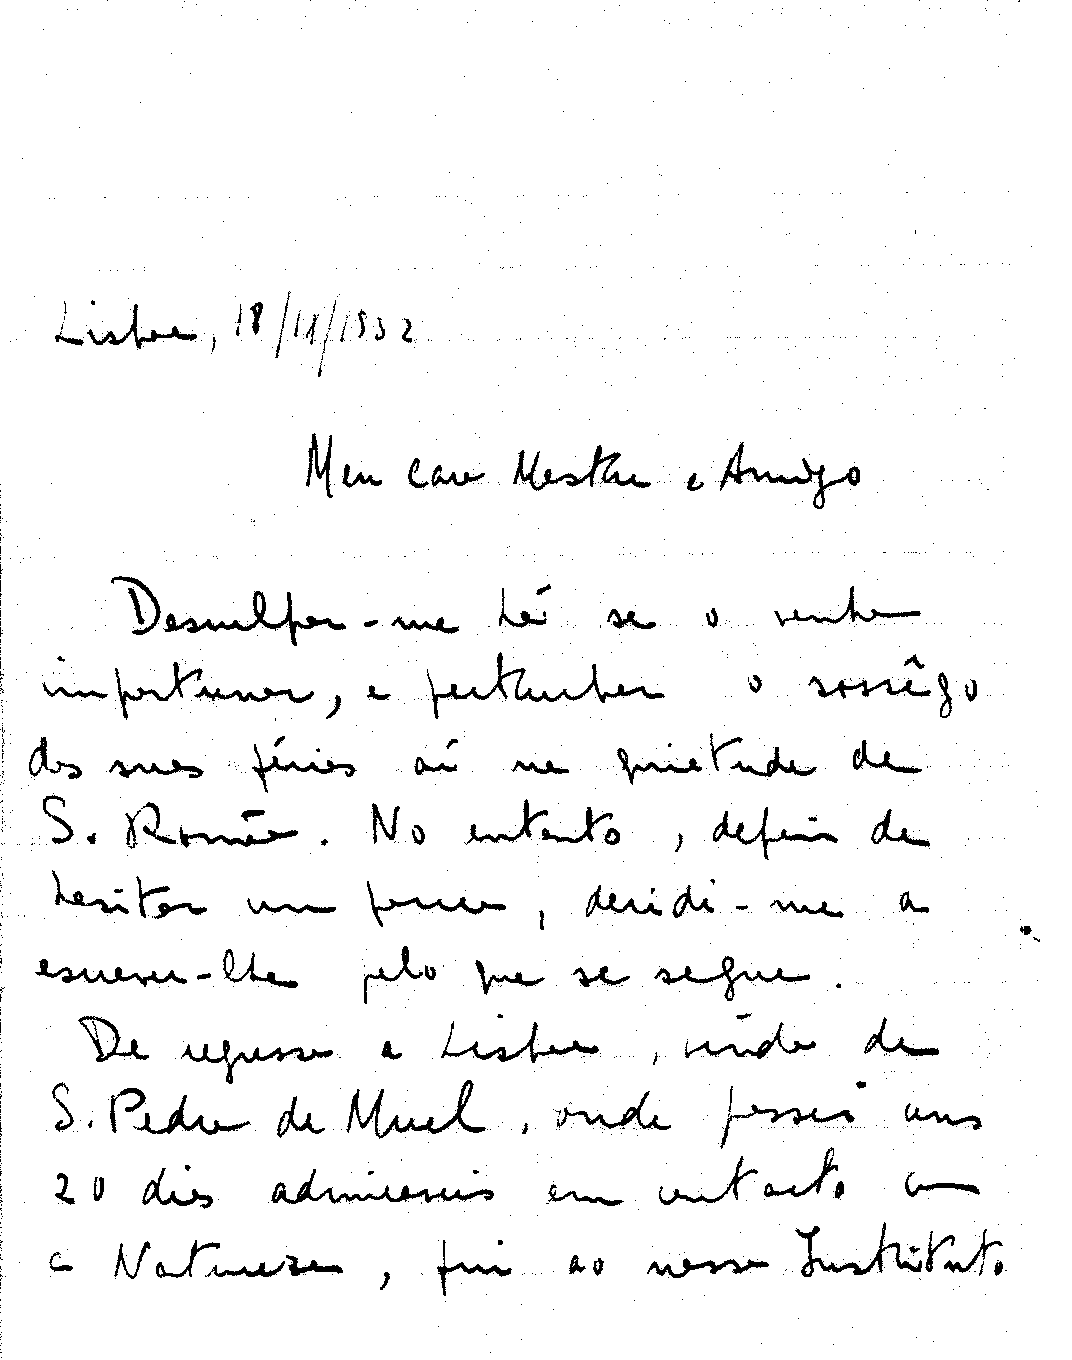 Lisboa, 18/11/1932
Meu caro Mestre e Amigo
Desculpar-me há se o venho
importunar, e perturbar o sossêgo
das suas férias aí na quietude de
S. Romão. No entanto, depois de
hesitar um pouco, decidi-me a
escrever-lhe pelo que se segue.
De regresso a Lisboa, vindo de
S. Pedro de Muel, onde passei uns
20 dias admiraveis em contacto com
a Natureza, fui ao nosso Instituto